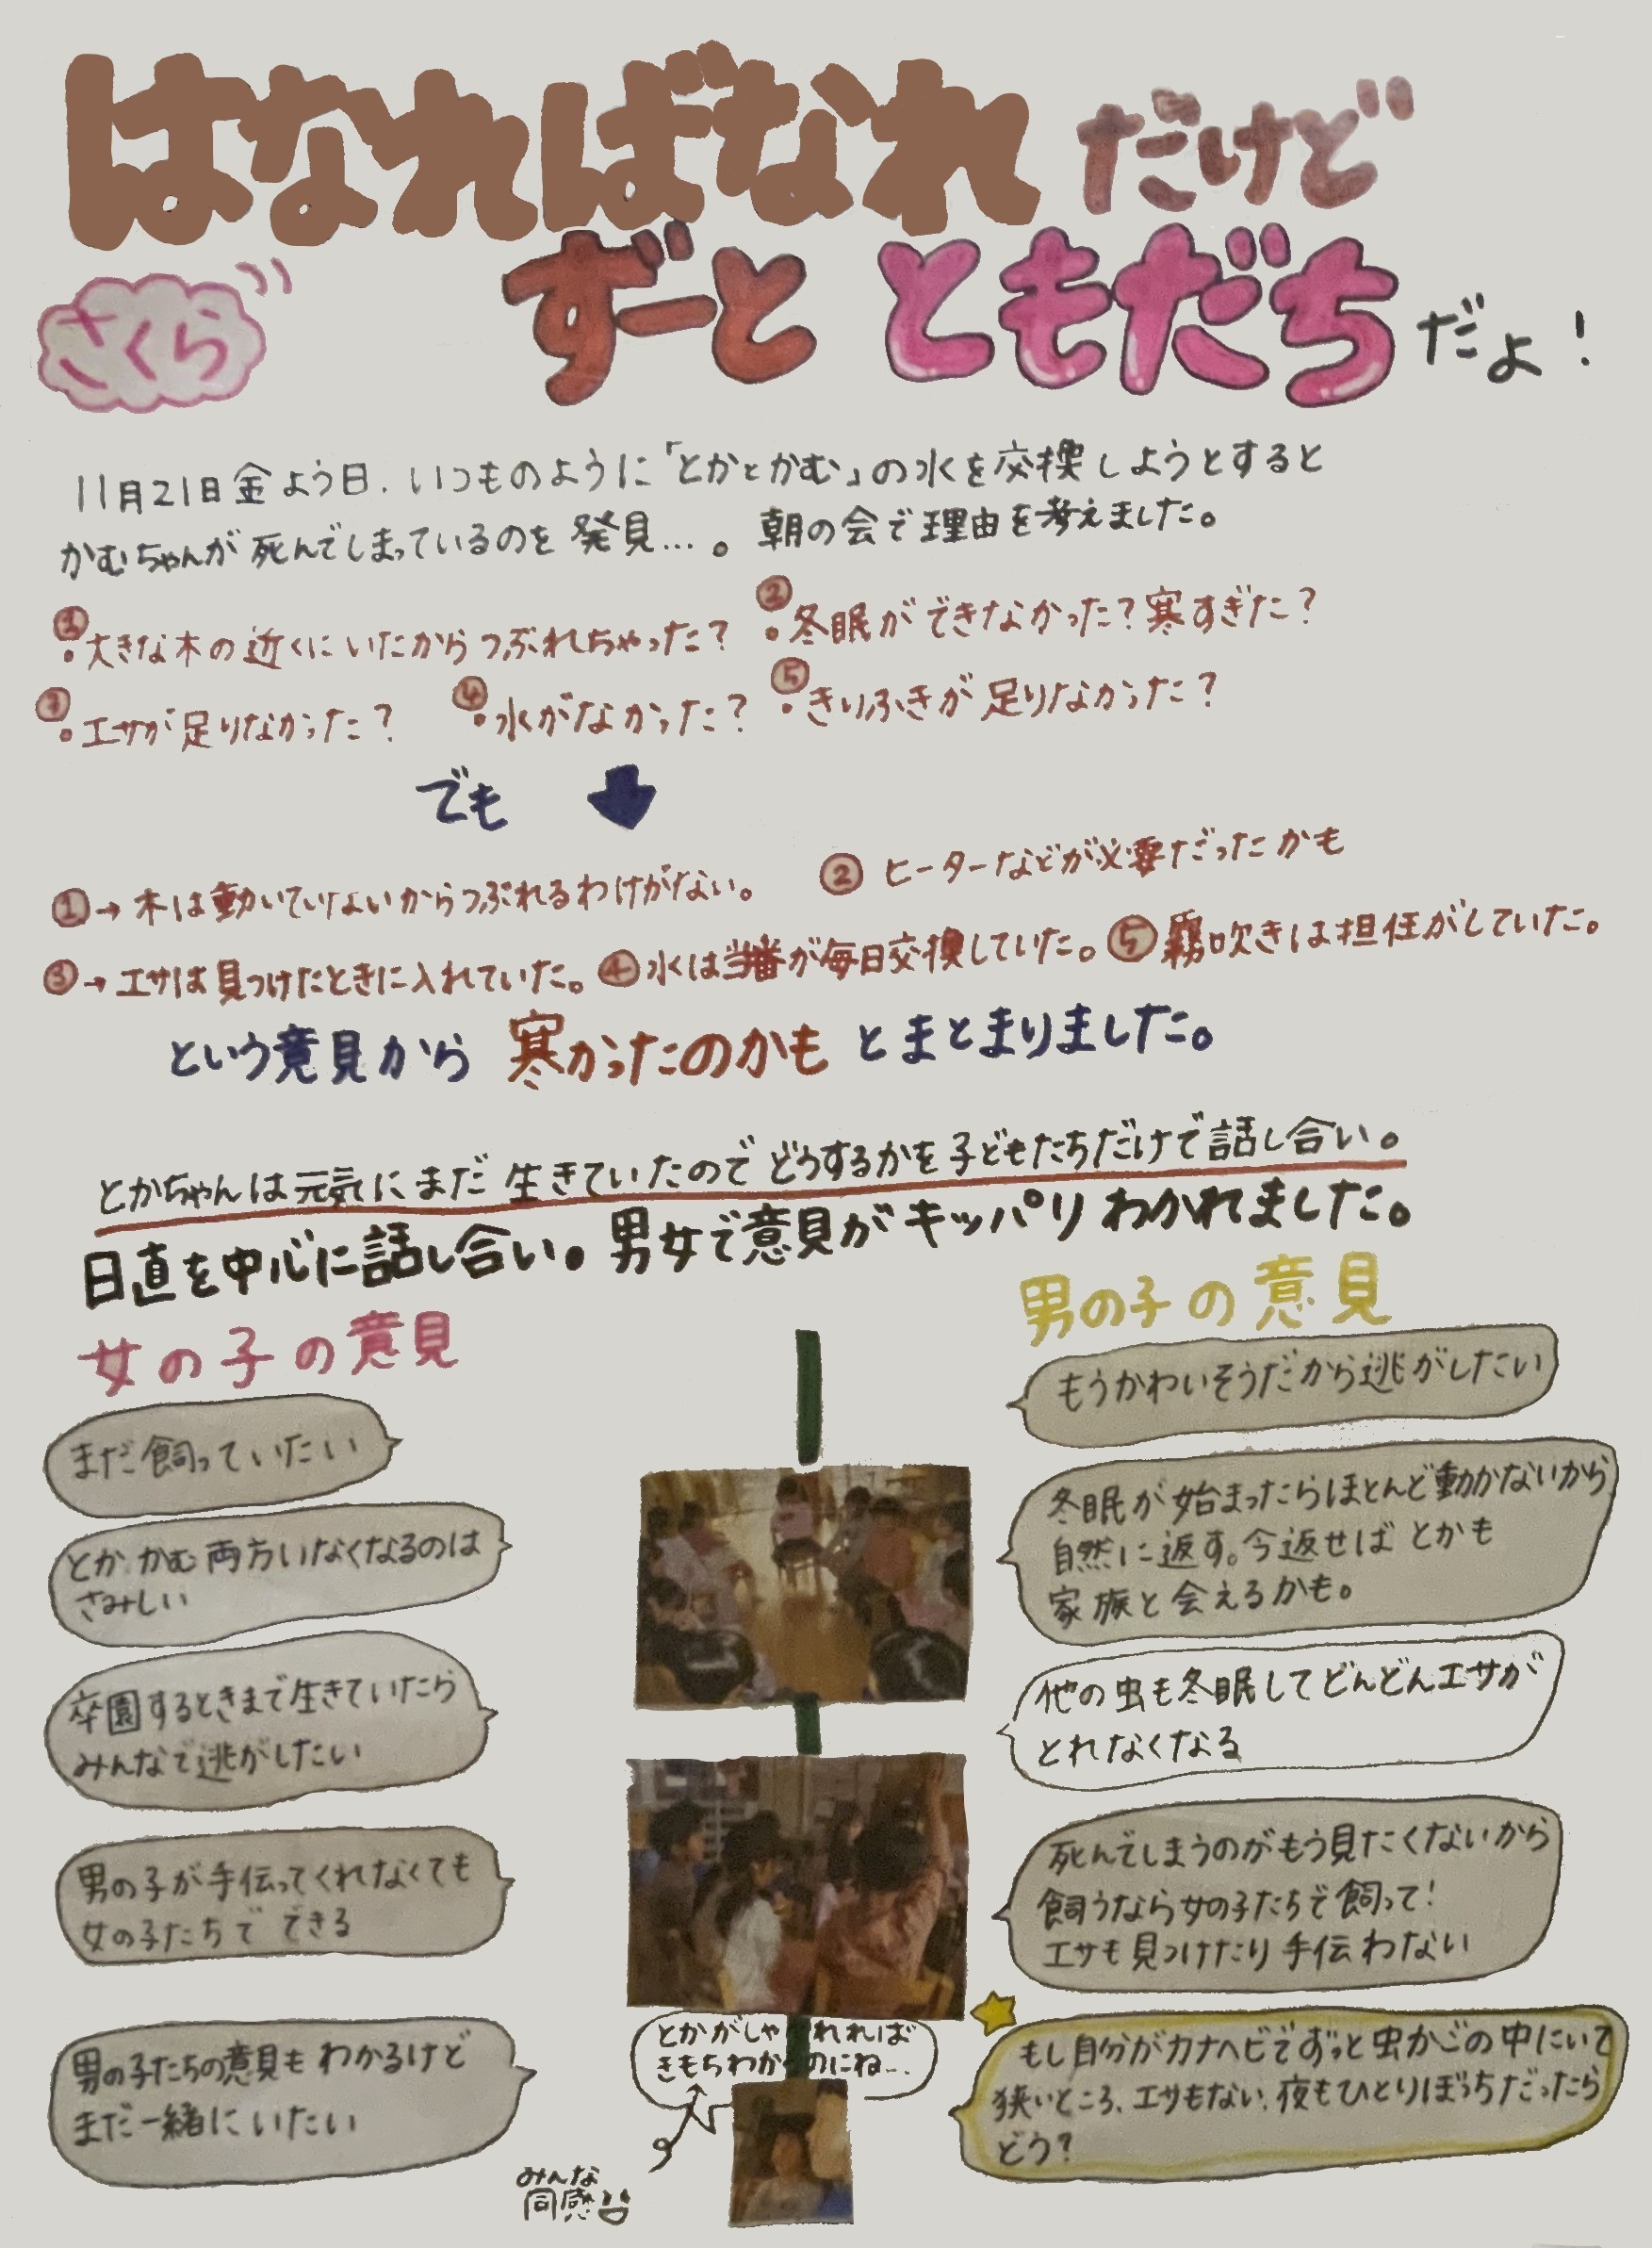 はなればなれ だけど
ずーと ともだち だよ！
さくら
11月21日金よう日、いつものように「とかとかむ」の水を交換しようとすると
かむちゃんが死んでしまっているのを発見…。朝の会で理由を考えました。
①・大きな木の近くにいたからつぶれちゃった？ ②・冬眠ができなかった？寒すぎた？
③・エサが足りなかった？ ④・水がなかった？ ⑤・きりふきが足りなかった？
でも ⬇
①→木は動いていないからつぶれるわけがない。 ② ヒーターなどが必要だったかも
③→エサは見つけたときに入れていた。④水は当番が毎日交換していた。⑤霧吹きは担任がしていた。
という意見から 寒かったのかも とまとまりました。
とかちゃんは元気にまだ生きていたのでどうするかを子どもたちだけで話し合い。
日直を中心に話し合い。男女で意見がキッパリわかれました。
女の子の意見
まだ飼っていたい
とか、かむ両方いなくなるのは
さみしい
卒園するときまで生きていたら
みんなで逃がしたい
男の子が手伝ってくれなくても
女の子たちでできる
男の子たちの意見もわかるけど
まだ一緒にいたい
男の子の意見
もうかわいそうだから逃がしたい
冬眠が始まったらほとんど動かないから
自然に返す。今返せばとかも
家族と会えるかも。
他の虫も冬眠してどんどんエサが
とれなくなる
死んでしまうのがもう見たくないから
飼うなら女の子たちで飼って！
エサも見つけたり手伝わない
もし自分がカナヘビでずっと虫かごの中にいて
狭いところ、エサもない、夜もひとりぼっちだったら
どう？
とかがしゃ れれば
きもちわか のにね…
みんな
同感